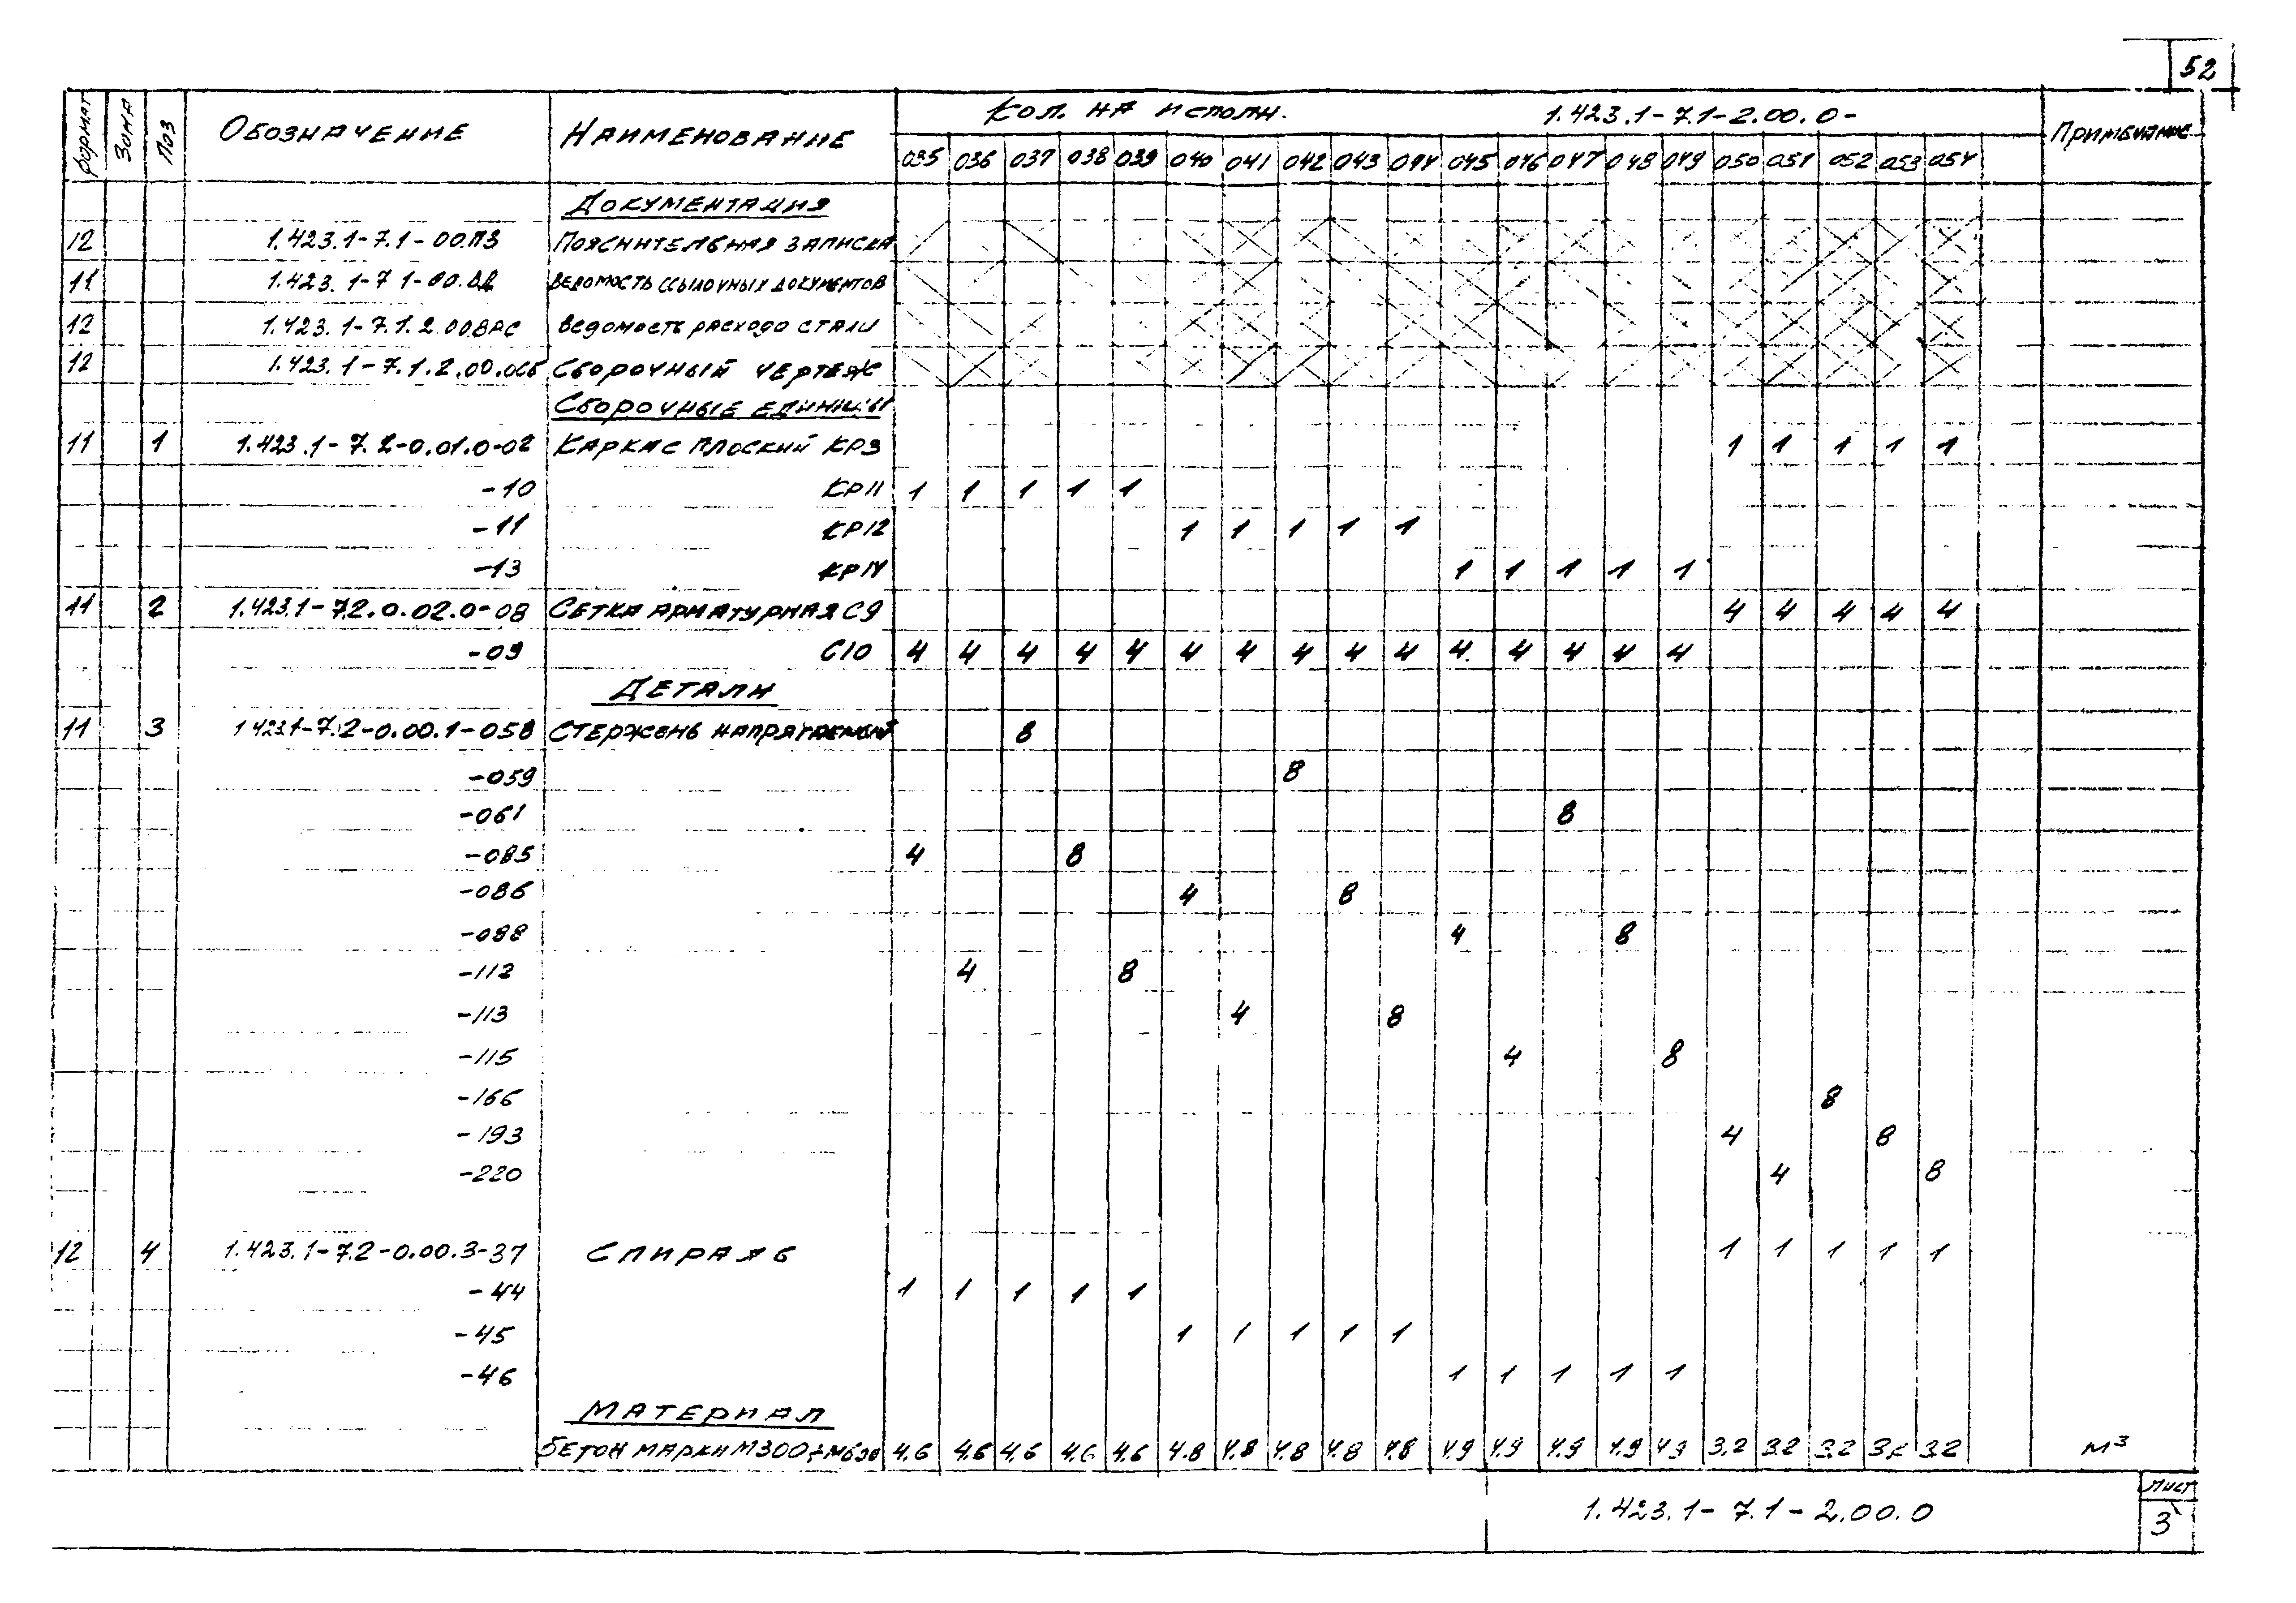 52
Формат Зона Поз Обозначение Наименование Кол. на исполн. 1.423.1-7.1-2.00.0- Примечание
035 036 037 038 039 040 041 042 043 044 045 046 047 048 049 050 051 052 053 054
Документация
12 1.423.1-7.1-00.ПЗ Пояснительная записка
11 1.423.1-7 1-00.ВД Ведомость ссылочных документов
12 1.423.1-7.1.2.00ВРС Ведомость расхода стали
12 1.423.1-7.1.2.00.0СБ Сборочный чертеж
Сборочные единицы
11 1 1.423.1-7.2-0.01.0-02 Каркас плоский КР3 1 1 1 1 1
-10 КР11 1 1 1 1 1
-11 КР12 1 1 1 1 1
-13 КР14 1 1 1 1 1
11 2 1.423.1-7.2.0.02.0-08 Сетка арматурная С9 4 4 4 4 4
-09 С10 4 4 4 4 4 4 4 4 4 4 4 4 4 4 4
Детали
11 3 1.423.1-7.2-0.00.1-058 Стержень напрягаемый 8
-059 8
-061 8
-085 4 8
-086 4 8
-088 4 8
-112 4 8
-113 4 8
-115 4 8
-166 8
-193 4 8
-220 4 8
12 4 1.423.1-7.2-0.00.3-37 Спираль 1 1 1 1 1
-44 1 1 1 1 1
-45 1 1 1 1 1
-46 1 1 1 1 1
Материал
Бетон марки М300÷М600 4.6 4.6 4.6 4.6 4.6 4.8 4.8 4.8 4.8 4.8 4.9 4.9 4.9 4.9 4.9 3.2 3.2 3.2 3.2 3.2 м³
1.423.1-7.1-2.00.0
Лист
3